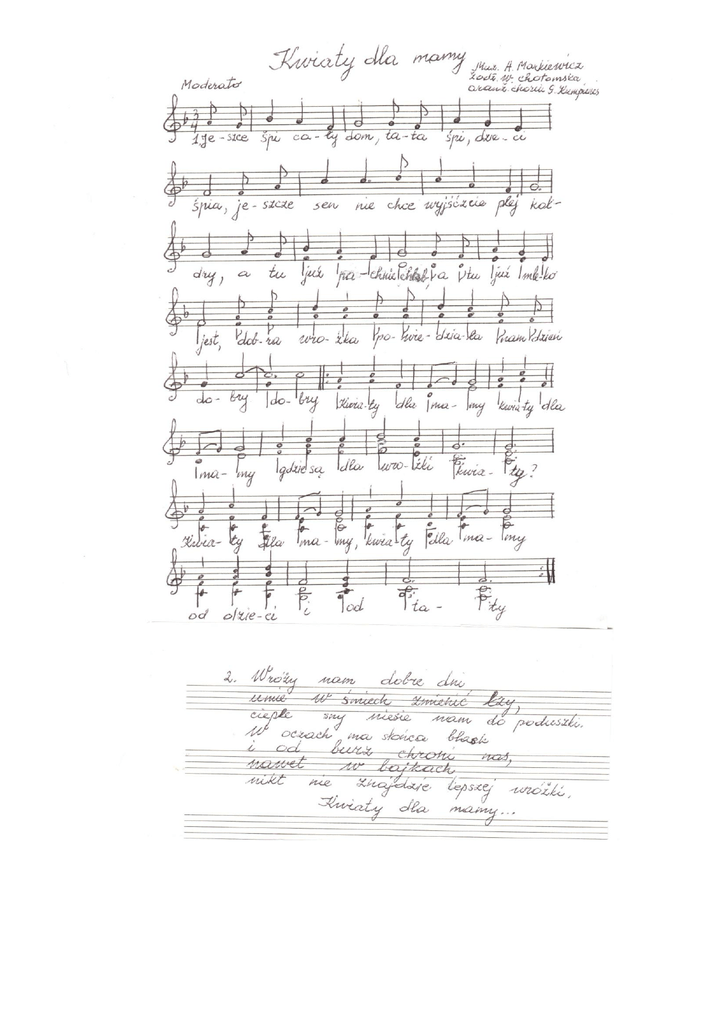 Kwiaty dla mamy
Muz. A. Markiewicz
Moderato
W. Chotomska
aranż chóru G.
1 Je-szcze śpi ca-ły dom, ta-ta śpi, dzie-ci
śpią, je-szcze sen nie chce wyjść z cie płej koł-
dry, a tu już pa-chnie chleb, a tu już mle-ko
jest, dob-ra wró-żka po-wie-dzia-ła nam dzień
do-bry do-bry Kwia-ty dla ma-my kwia-ty dla
ma-my gdzie są dla wró-żki kwia-ty?
Kwia-ty dla ma-my, kwia-ty dla ma-my
od dzie-ci i od ta-ty
2. Wróży nam dobre dni
umie w śmiech zmienić łzy,
ciepłe sny niesie nam do poduszki.
W oczach ma słońca blask
i od burz chroni nas,
nawet w bajkach
nikt nie znajdzie lepszej wróżki.
Kwiaty dla mamy...